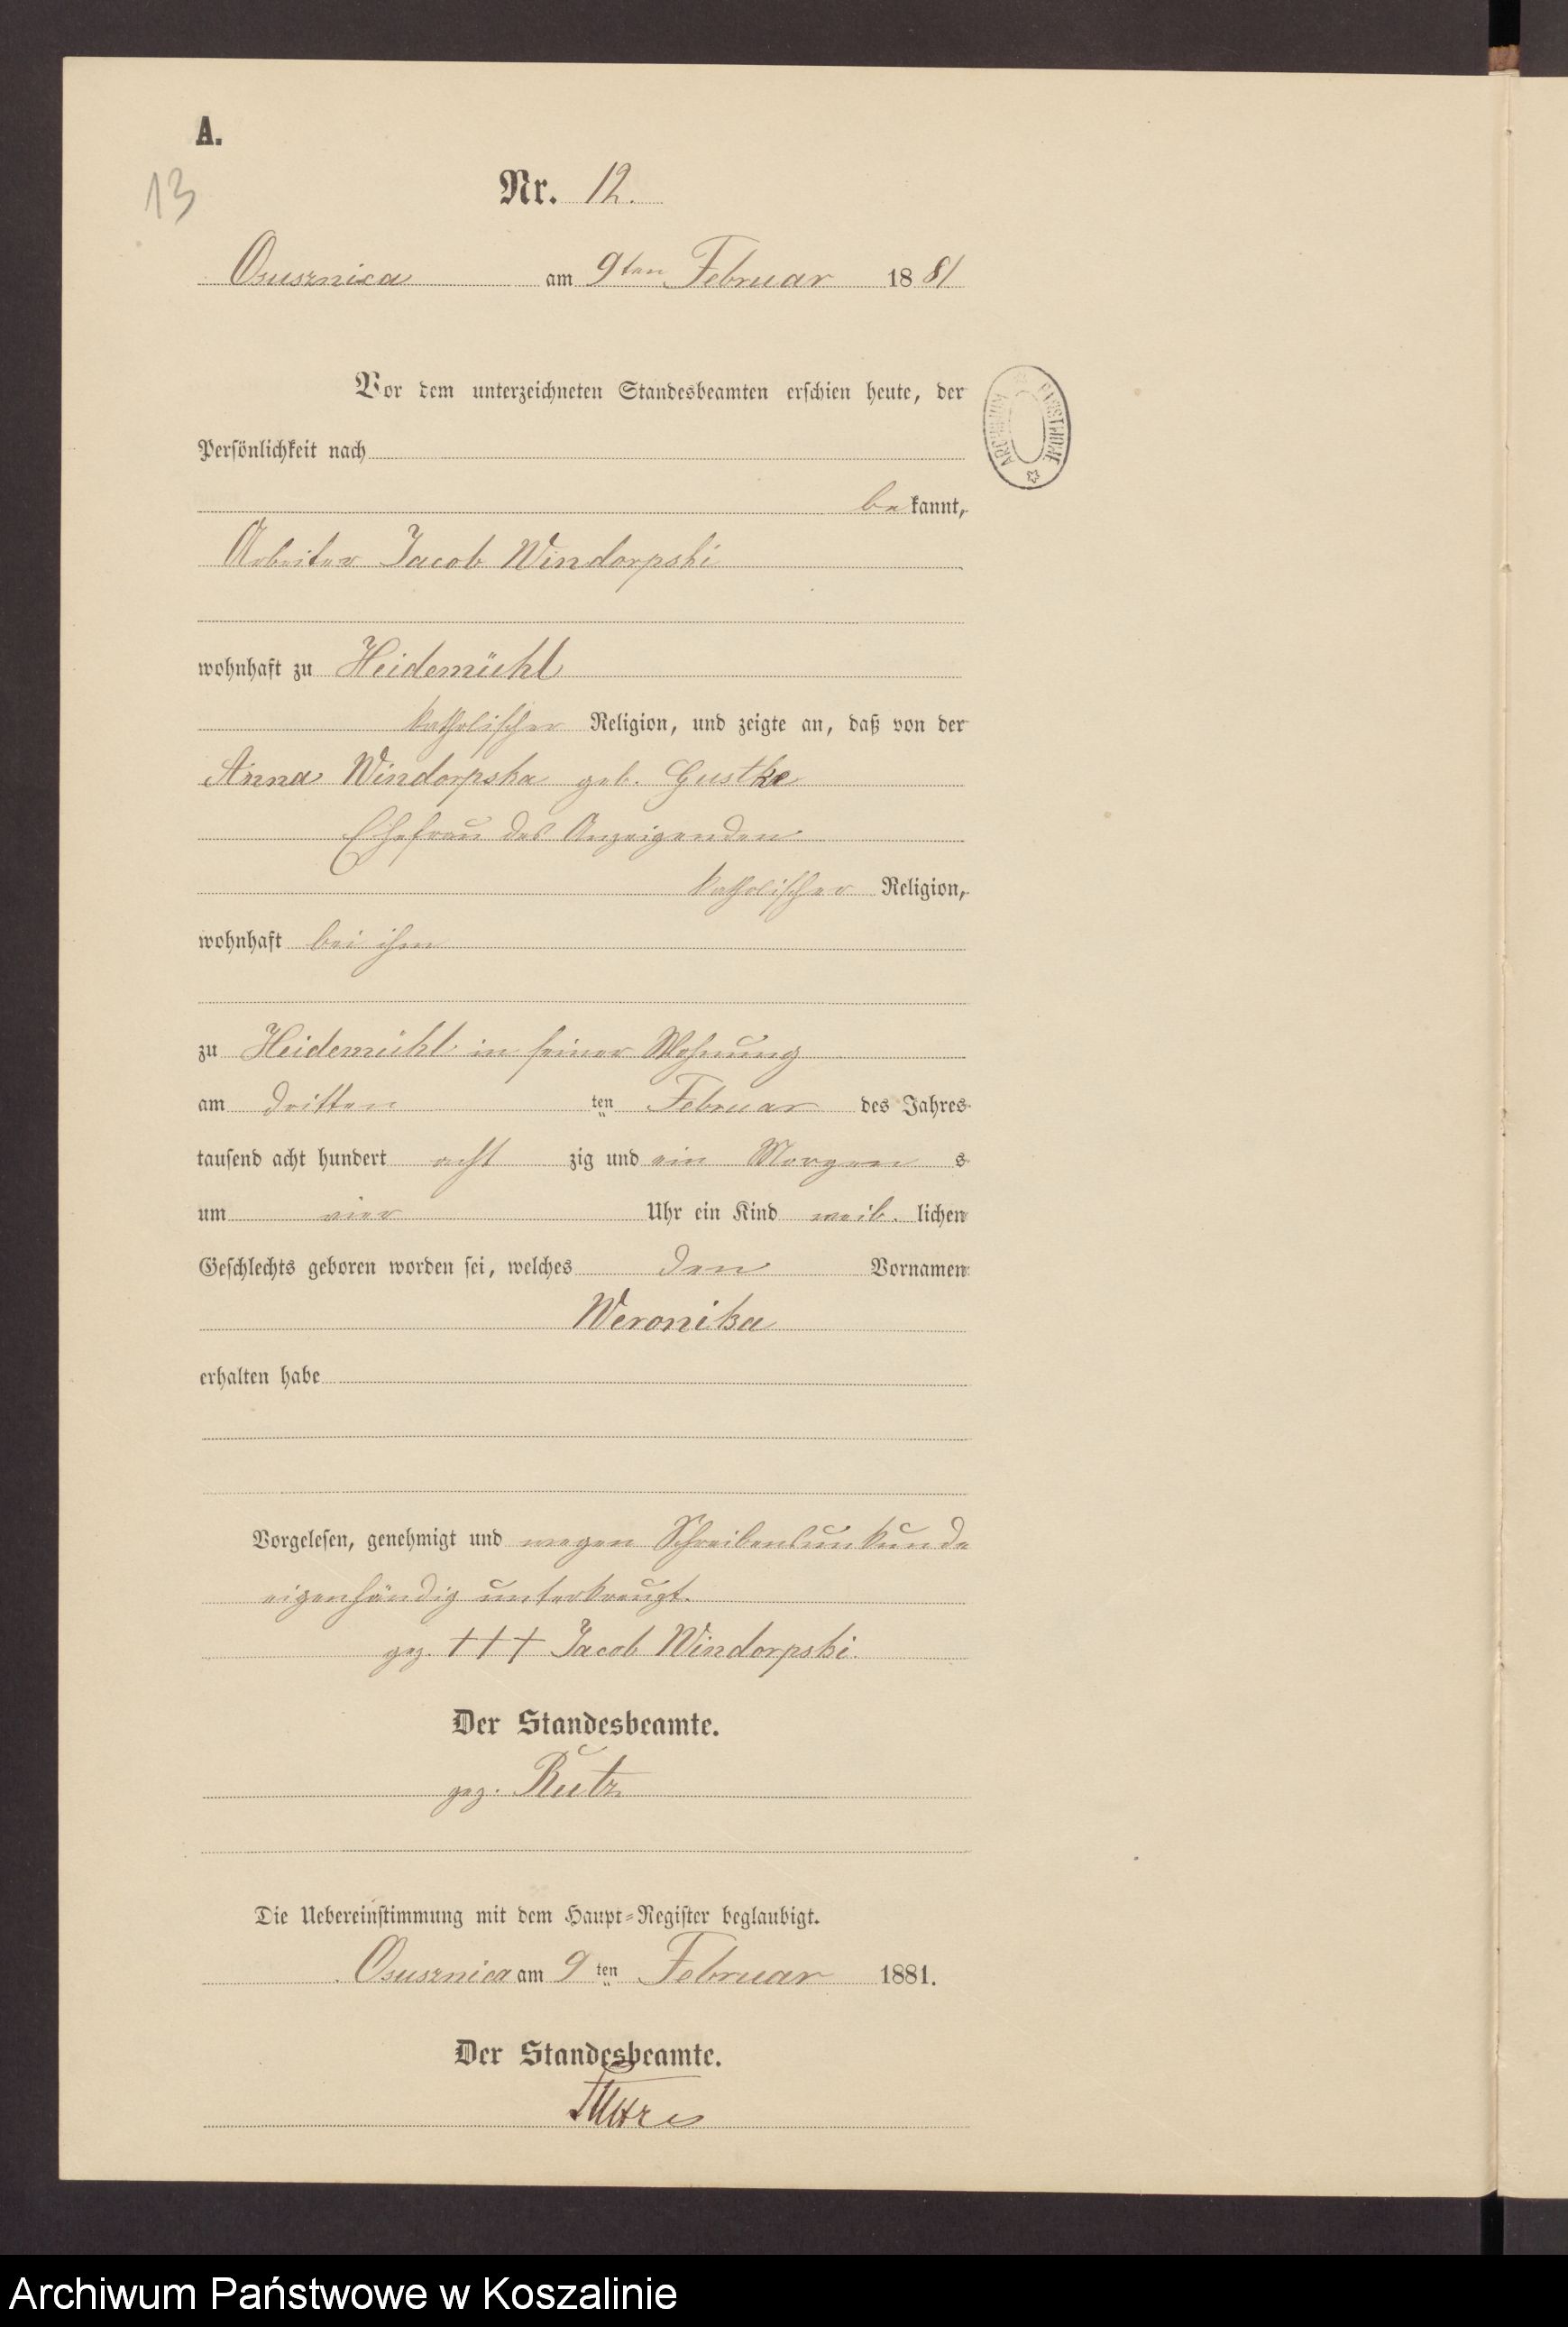 A.
13
Nr. 12.
Osusznica am 9ten Februar 1881
Vor dem unterzeichneten Standesbeamten erschien heute, der
Persönlichkeit nach
be kannt,
Arbeiter Jacob Windorpski
wohnhaft zu Heidemühl
katholischer Religion, und zeigte an, daß von der
Anna Windorpska geb. Gustke
Ehefrau des Anzeigenden
katholischer Religion,
wohnhaft bei ihm
zu Heidemühl in seiner Wohnung
am dritten ten Februar des Jahres
tausend acht hundert acht zig und ein Morgen s
um vier Uhr ein Kind weib. lichen
Geschlechts geboren worden sei, welches den Vornamen
Weronika
erhalten habe
Vorgelesen, genehmigt und wegen Schreibensunkunde
eigenhändig unterkreuzt.
gez. +++ Jacob Windorpski.
Der Standesbeamte.
gez. Rutz
Die Uebereinstimmung mit dem Haupt=Register beglaubigt.
Osusznica am 9 ten Februar 1881.
Der Standesbeamte.
Archiwum Państwowe w Koszalinie